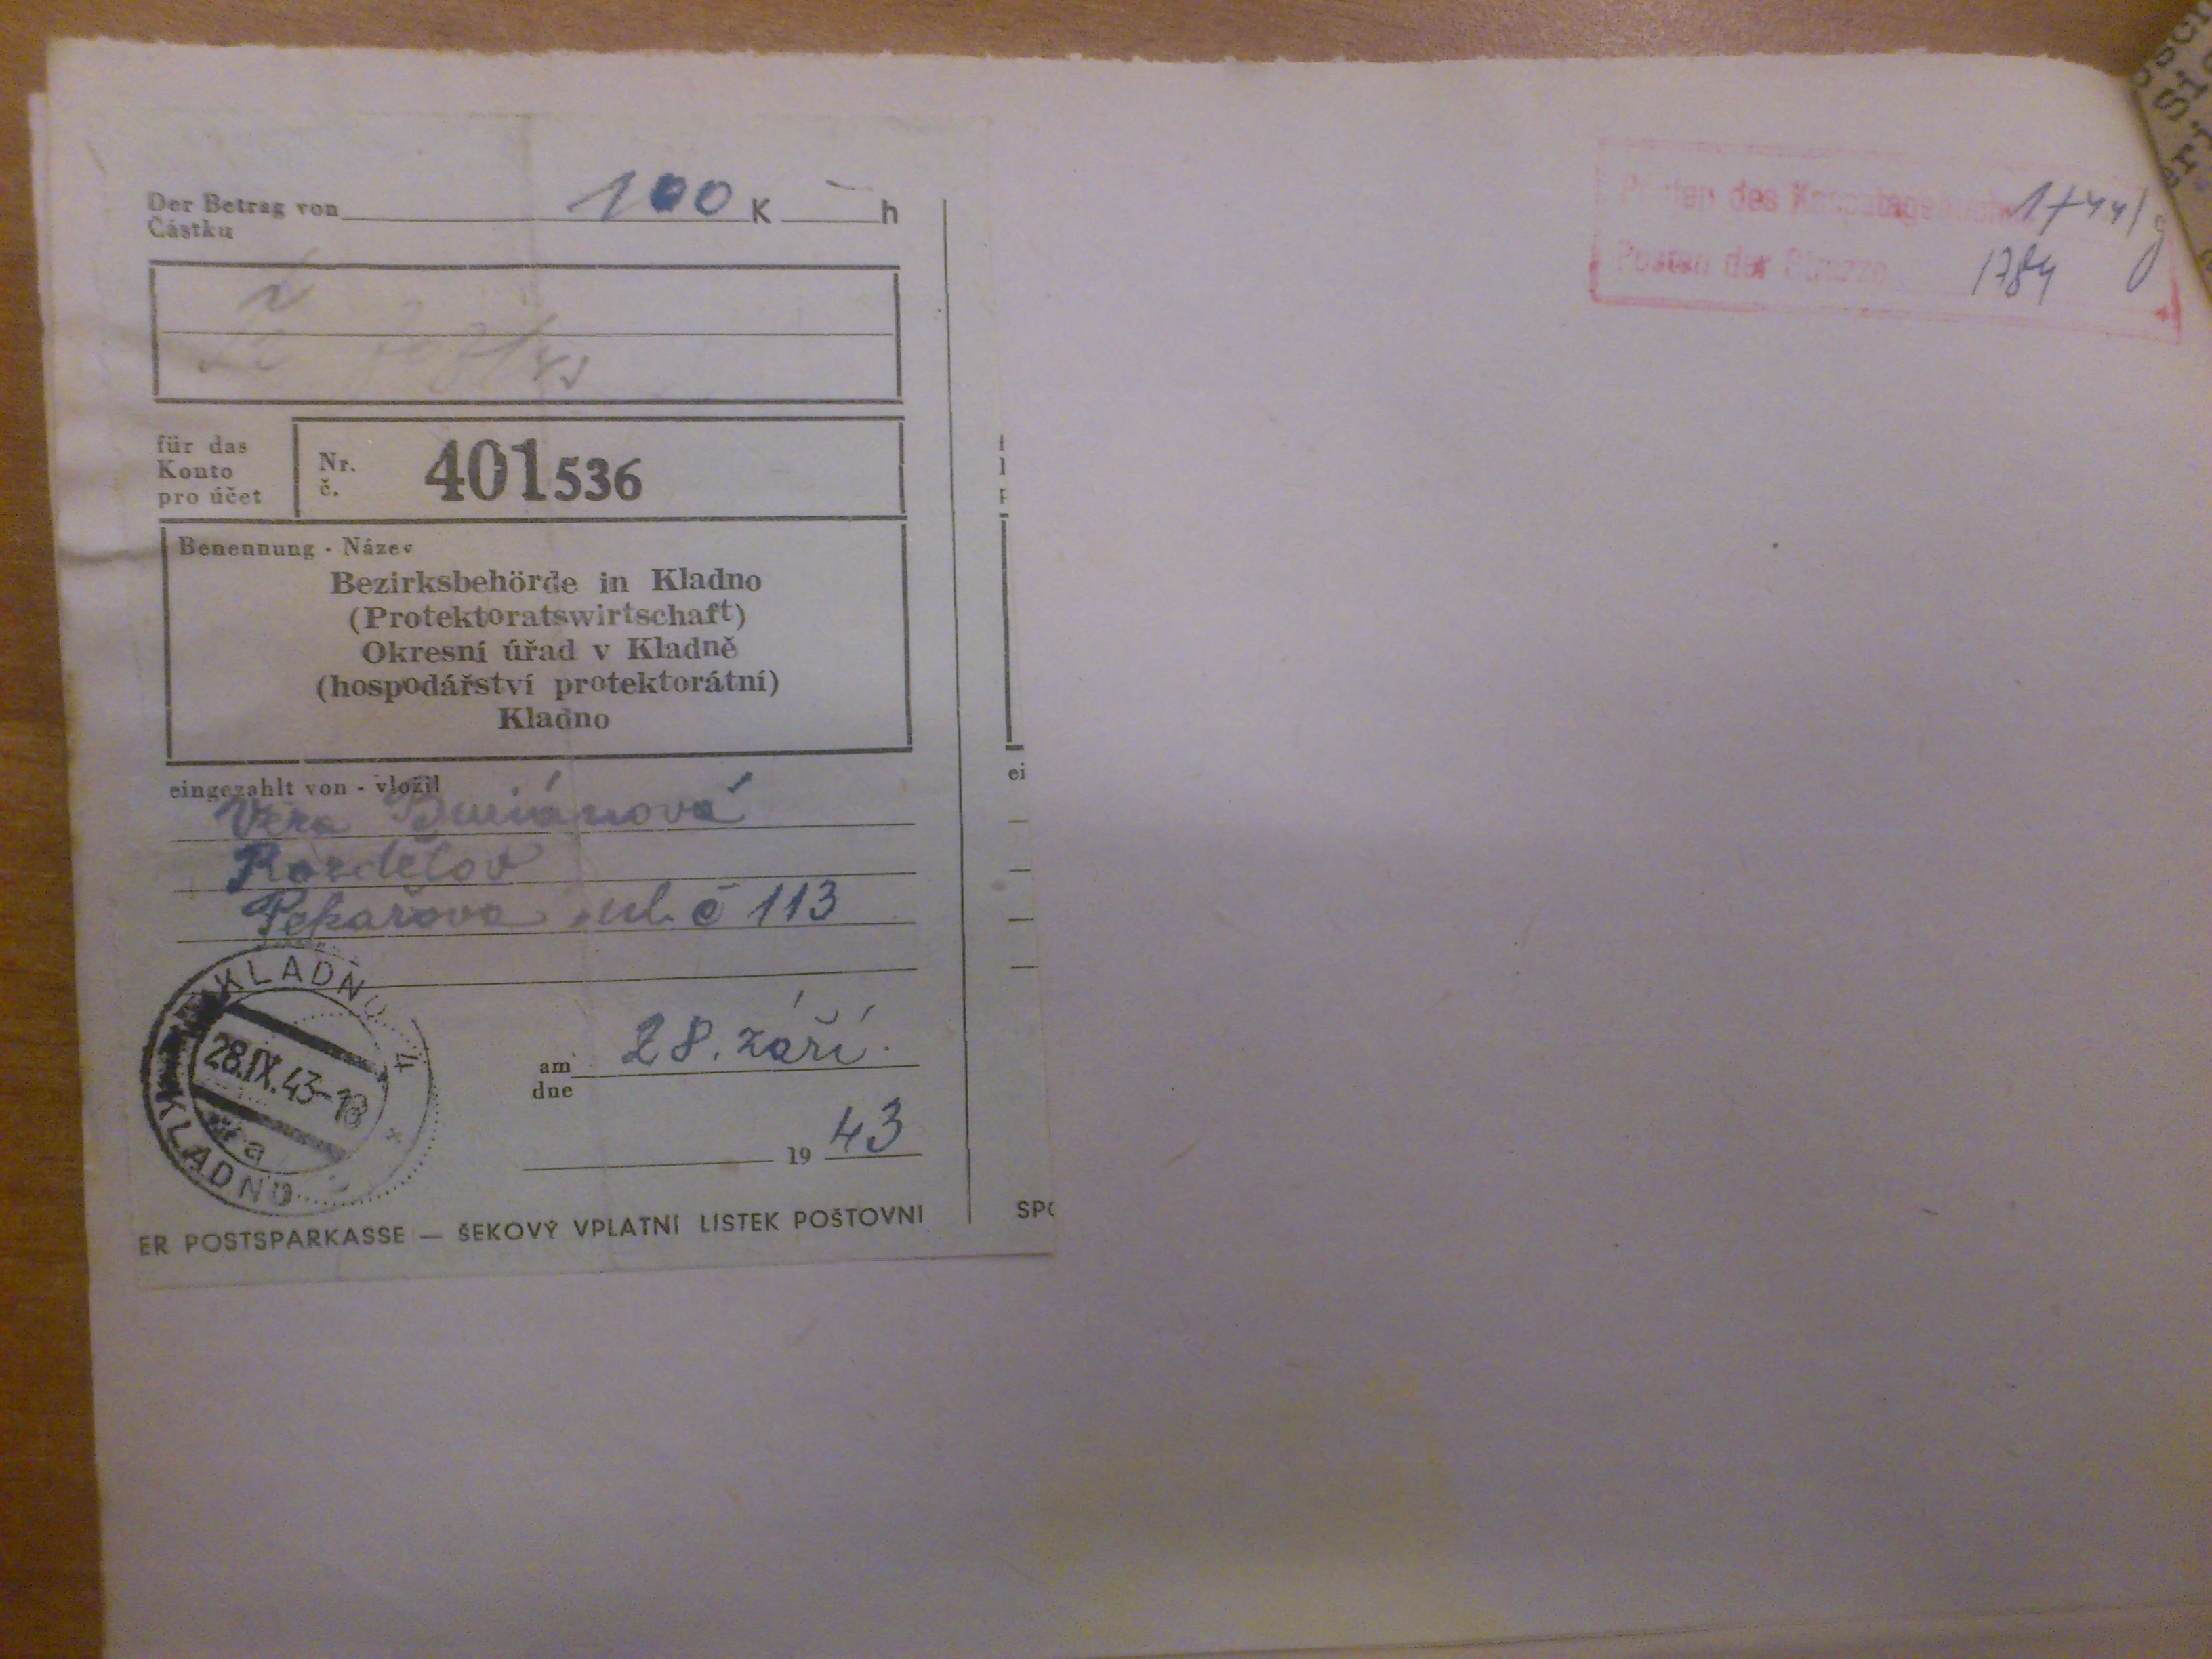 Der Betrag von 100 K — h
Částku
für das
Konto
pro účet
Nr.
č.
401536
Benennung - Název
Bezirksbehörde in Kladno
(Protektoratswirtschaft)
Okresní úřad v Kladně
(hospodářství protektorátní)
Kladno
eingezahlt von - vložil
Věra Buriánová
Rozdělov
Pekařova ul. č 113
KLADNO 4
28.IX.43-18
a
KLADNO
am 28. září.
dne
19 43
ER POSTSPARKASSE — ŠEKOVÝ VPLATNÍ LÍSTEK POŠTOVNÍ
ei
SPO
Posten des Kassatagebuch
Posten der Strazze 1784